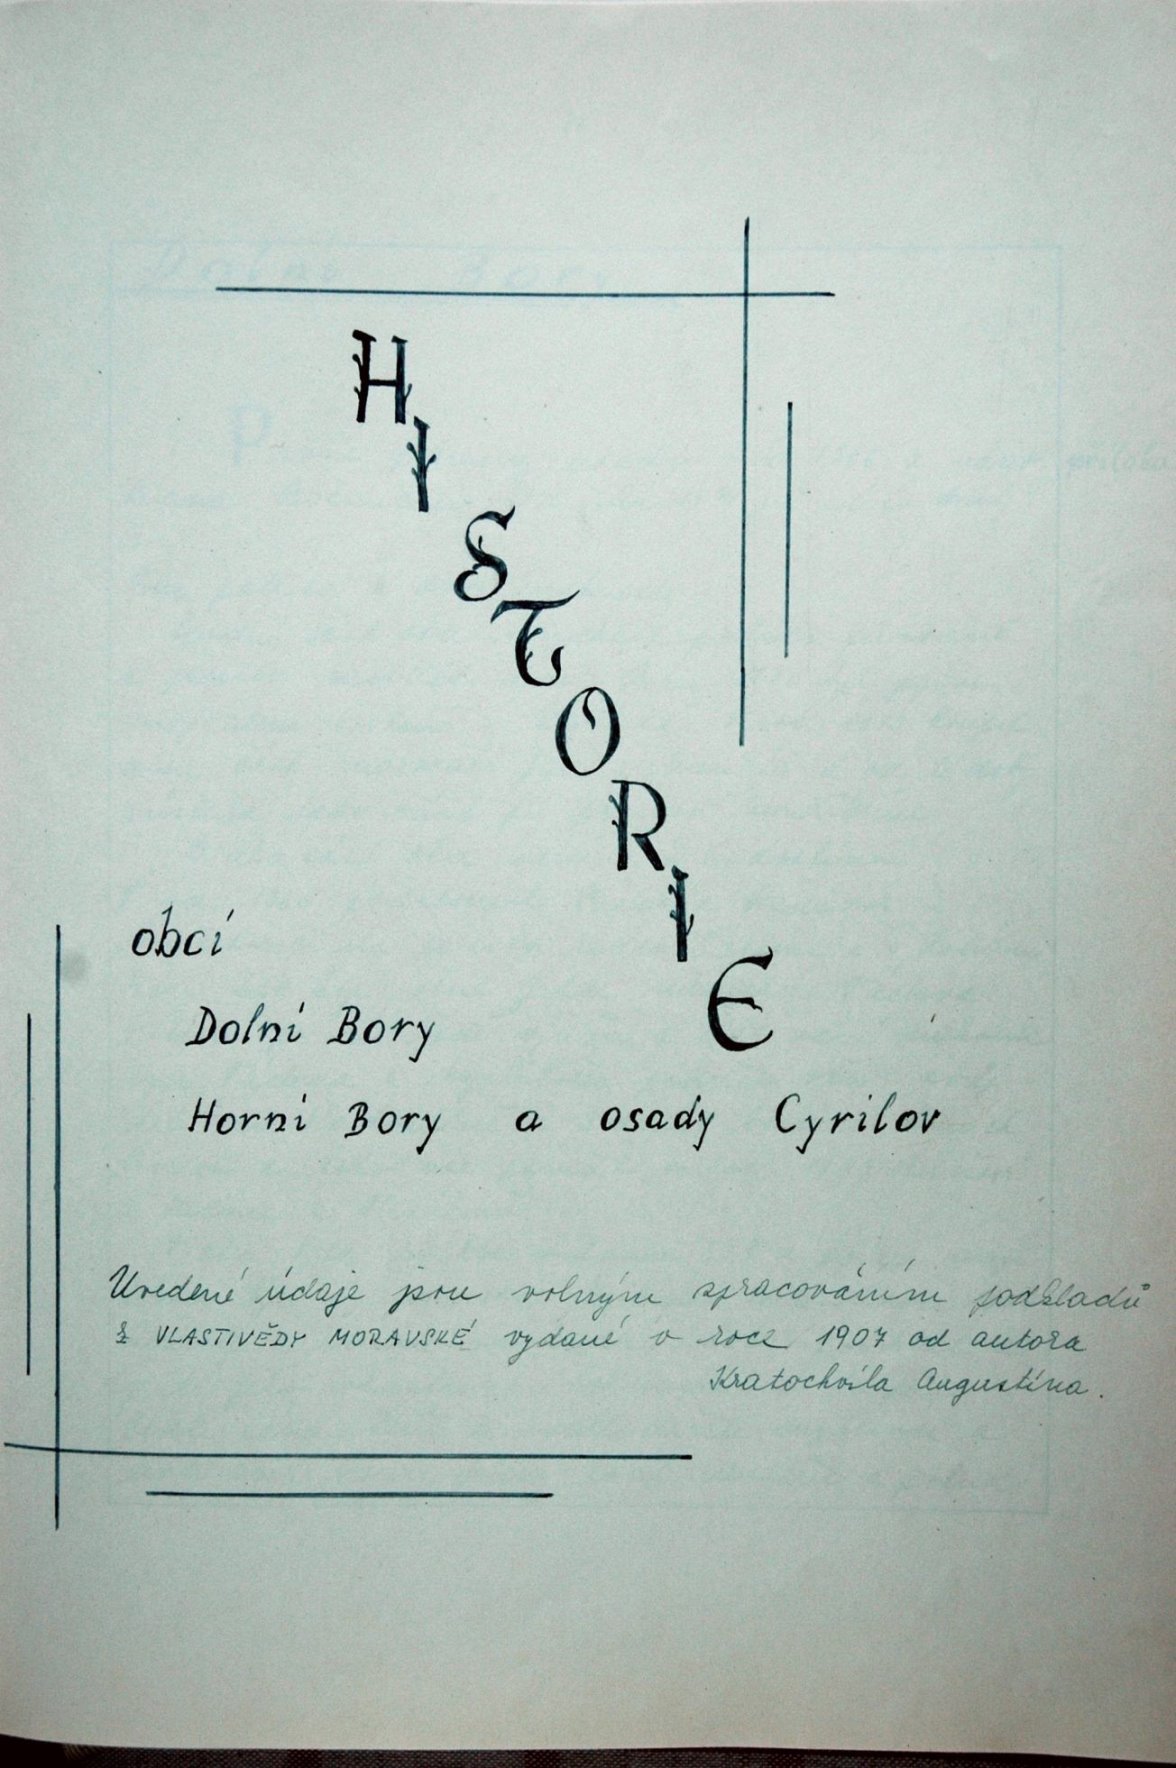 HISTORIE
obcí
Dolní Bory
Horní Bory a osady Cyrilov
Uvedené údaje jsou volným zpracováním podkladů
z VLASTIVĚDY MORAVSKÉ vydané v roce 1907 od autora
Kratochvíla Augustina.